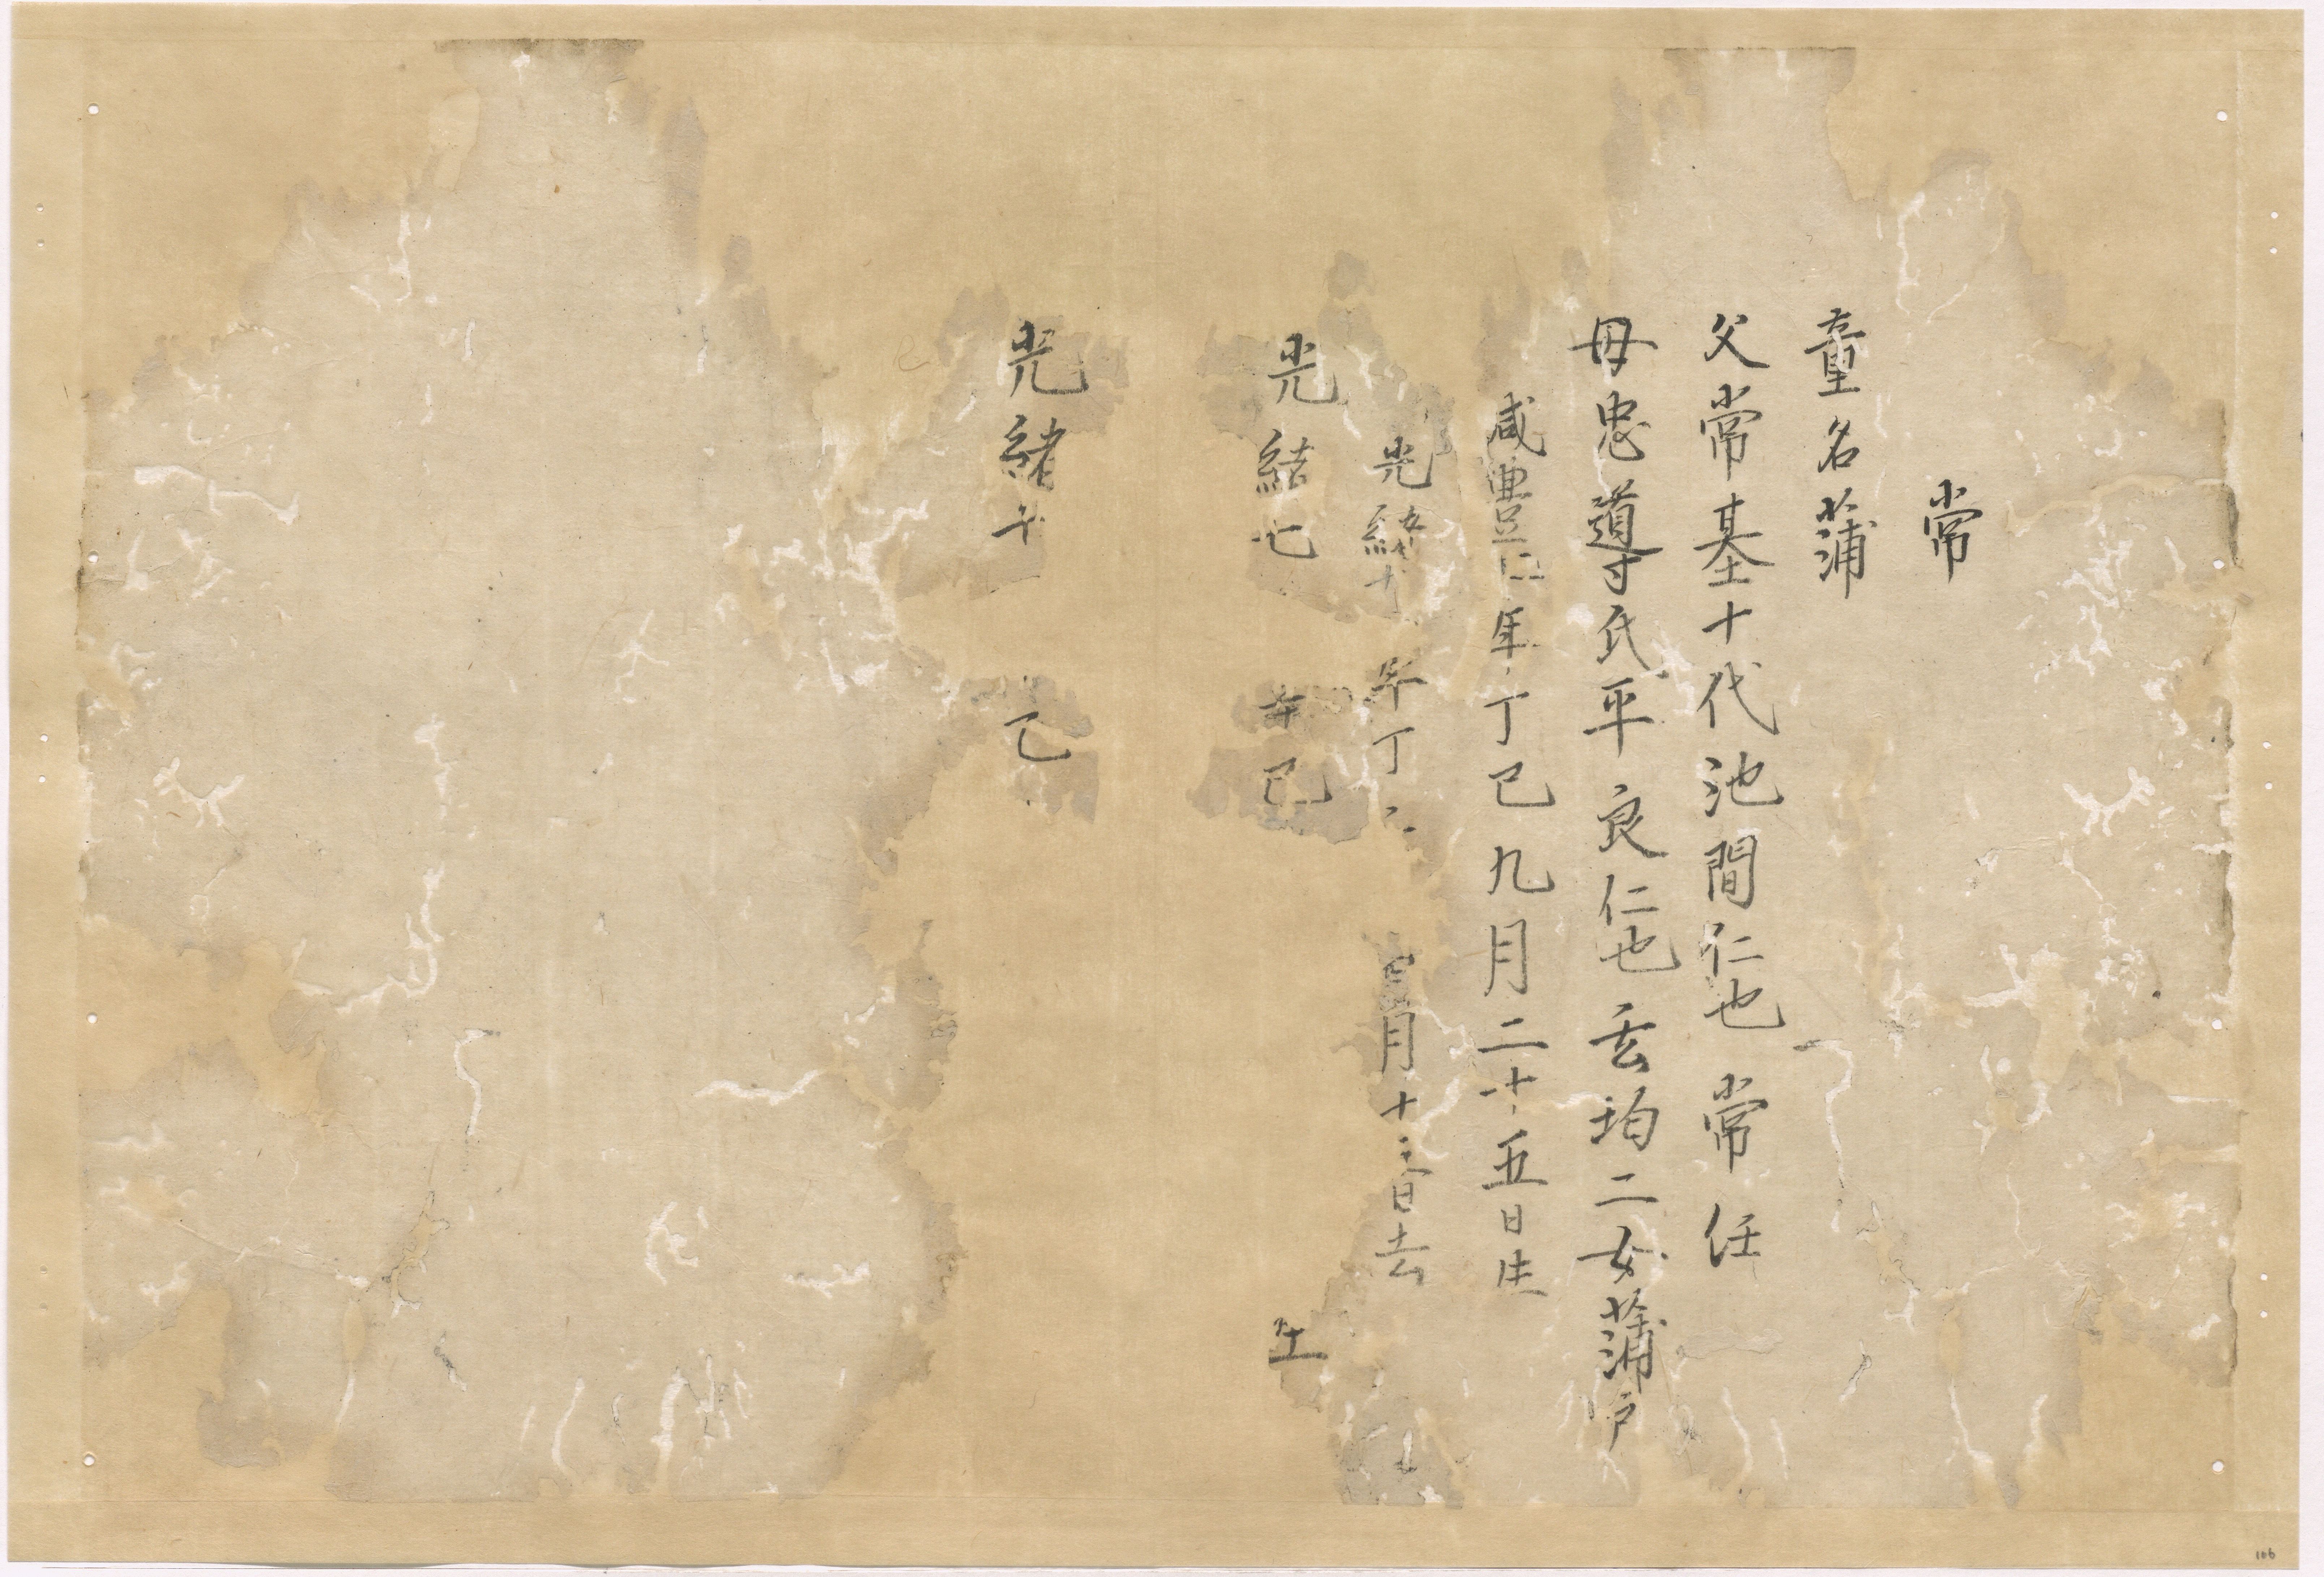 常
童名蒲
父常基十代池間仁也常任
母忠導氏平良仁也玄均二女蒲戸
咸豊 年丁巳九月二十五日生
光緒 年丁 月十 日去
光緒七 辛巳 生
光緒 年 己
106